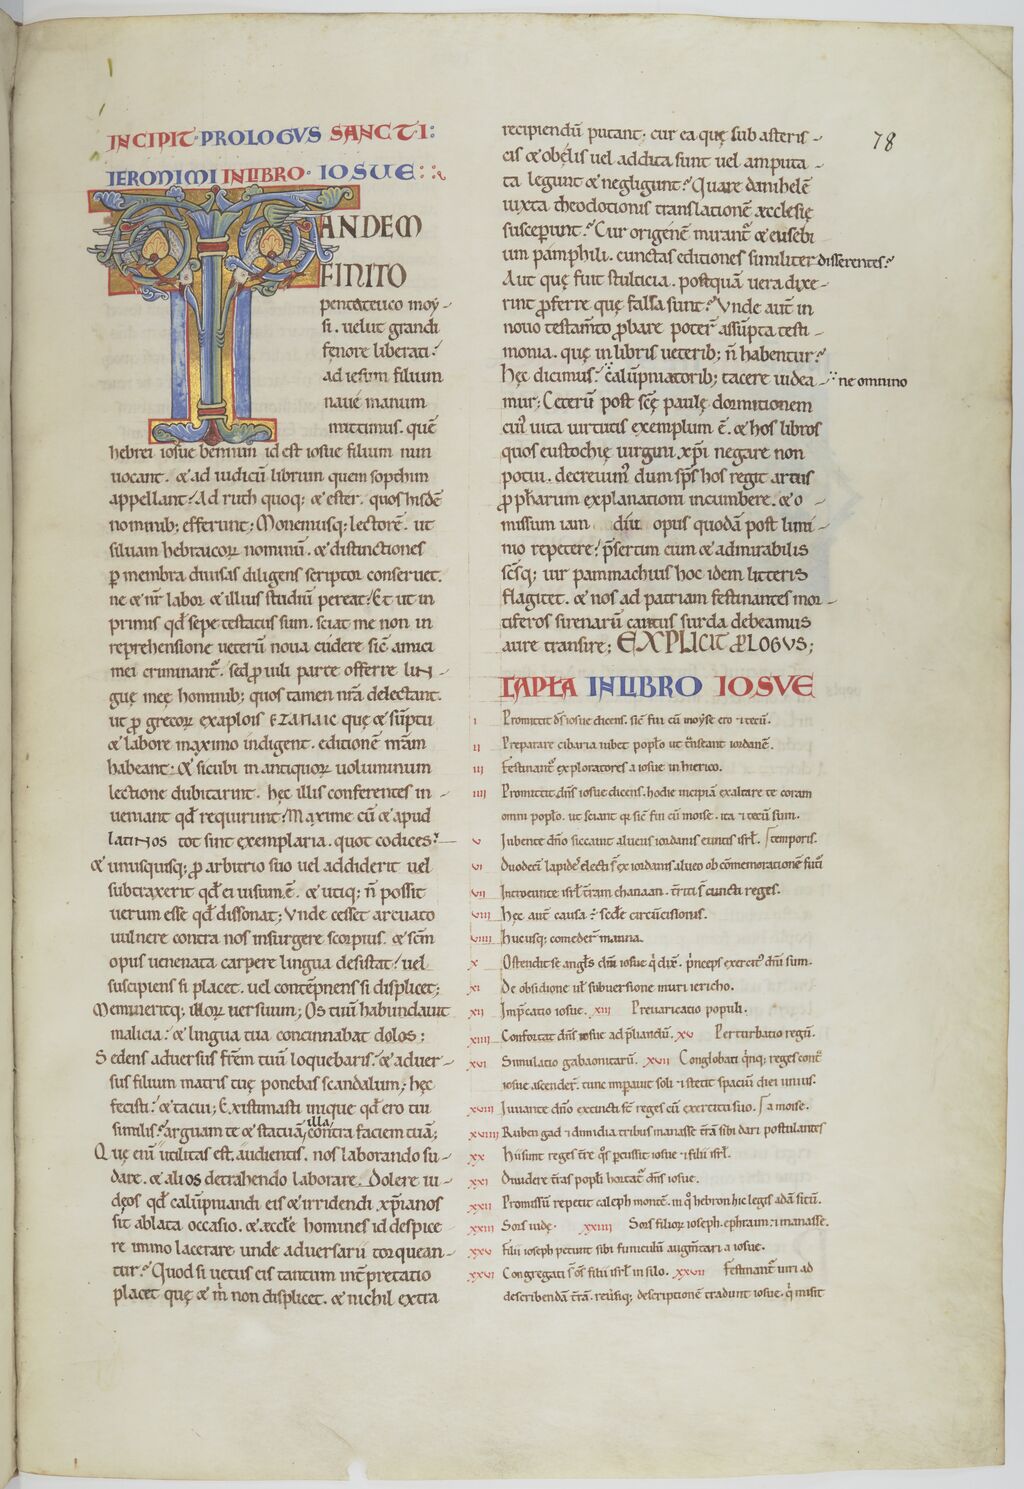 INCIPIT·PROLOGVS SANCTI:
IERONIMI IN LIBRO· IOSVE::
TANDEM
FINITO
pentateuco moy-
si. uelut grandi
fenore liberati:
ad iesum filium
naue manum
mittimus. quē
hebrei iosue bennun id est iosue filium nun
uocant. & ad iudicū librum quem sopthim
appellant. Ad ruth quoq; & ester. quos hisdē
nominib; efferunt; Monemusq; lectorē. ut
siluam hebraicoꝝ nominū. & distinctiones
ꝑ membra diuisas diligens scriptor conseruet.
ne & nr̄ labor & illius studiū pereat. Et ut in
primis qđ sepe testatus sum. sciat me non in
reprehensione ueterū noua cudere sic̄ amici
mei criminant̄. sed ꝓ uili parte offerre lin-
guę meę hominib; quos tamen nr̄a delectant.
ut ꝓ grecoꝝ exaplois quę & sūptu
& labore maximo indigent. editionē nr̄am
habeant: & sicubi in antiquoꝝ uoluminum
lectione dubitarint. hęc illis conferentes in-
ueniant qđ requirunt. Maxime cū & apud
latinos tot sint exemplaria. quot codices:
& unusquisq; ꝓ arbitrio suo uel addiderit uel
subtraxerit qđ ei uisum ē. & utiq; n̄ possit
uerum esse qđ dissonat; Vnde cesset arcuato
uulnere contra nos insurgere scorpius. & sc̄m
opus uenenata carpere lingua desistat. uel
suscipiens si placet. uel contēpnens si displicet;
Memineritq; illoꝝ uersuum; Os tuū habundauit
malicia: & lingua tua concinnabat dolos;
Sedens aduersus fr̄em tuū loquebaris. & aduer-
sus filium matris tuę ponebas scandalum; hęc
fecisti. & tacui; Existimasti inique qđ ero tui
similis: arguam te & statuā illa contra faciem tuā;
Quę enī utilitas est. audientis. nos laborando su-
dare. & alios detrahendo laborare. Dolere iu-
dęos qđ calūpniandi eis & irridendi xp̄ianos
sit ablata occasio. & æccl̄e homines id despice
re immo lacerare unde aduersarii torquean-
tur. Quod si uetus eis tantum int̄pretatio
placet quę & m̄ non displicet. & nichil extra
recipiendū putant. cur ea quę sub asteris-
cis & obelis uel addita sunt uel amputa-
ta legunt & negligunt: Quare danihelē
iuxta theodotionis translationē æcclesię
susceperunt: Cur origenē mirant̄ & eusebi
um pamphili. cunctas editiones similiter disserentes:
Aut quę fuit stulticia. postquā uera dixe-
rint ꝓferre quę falsa sunt: Vnde aut̄ in
nouo testam̄to ꝓbare poter̄ assūpta testi-
monia. quę in libris ueterib; n̄ habentur:
hęc dicimus. calūpniatorib; tacere uidea- ne omnino
mur; Ceterū post sc̄ę paulę dormitionem
cuī uita uirtutis exemplum ē. & hos libros
quos eustochię uirgini xp̄i negare non
potui. decreuim̄ dum sp̄s hos regit artus
ꝓphārum explanationi incumbere. & o-
missum iam diu opus quodā post limi-
nio repetere: p̄sertim cum & admirabilis
sc̄sq; uir pammachius hoc idem litteris
flagitet. & nos ad patriam festinantes mor-
tiferos sirenarū cantus surda debeamus
aure transire; EXPLICIT PROLOGVS;
CAPLA IN LIBRO IOSVE
I Promittit ds̄ iosue dicens. sic̄ fui cū moyse ero ⁊ tecū.
II Preparare cibaria iubet poplo ut t̄nseant iordanē.
III Festinant̄ exploratores a iosue in hierico.
IIII Promittit dn̄s iosue dicens. hodie incipiā exaltare te coram
omni poplo. ut sciant qa sic̄ fui cū moise. ita ⁊ tecū sum.
V Iubente dn̄o siccauit alueus iordanis euntis isrl̄.
VI Duodeci lapides electi st̄ ex iordanis alueo ob cōmemorationē futi temporis.
VII Introeunte isrl̄ t̄ram chanaan. t̄riti st̄ cuncti reges.
VIII Hęc aut̄ causa: scd̄e circūcisionis.
VIIII Hucusq; comeder̄ manna.
X Ostendit se angls̄ dn̄i iosue q̇ dix̄. p̄nceps exercit̄ dn̄i sum.
XI De obsidione ul̄ subuersione muri iericho.
XII Imp̄catio iosue. XIII Preuaricatio populi.
XIIII Confortat dn̄s iosue ad p̄liandū. XV Perturbatio regū.
XVI Simulatio gabaonitarū. XVII Conglobati q̄nq; reges cont̄
iosue ascender̄. tunc imperauit soli ⁊ stetit spaciū diei unius.
XVIII Iuuante dn̄o extincti st̄ reges cū exercitu suo.
XVIIII Ruben gad ⁊ dimidia tribus manasse t̄rā sibi dari postulantes a moise.
XX Hi sunt reges t̄re q̄s percussit iosue ⁊ filii isrl̄.
XXI Diuidere t̄ras popli hortat̄ dn̄s iosue.
XXII Promissū repetit caleph montē. in q̇ hebron hic legis adā sitū.
XXIII Sors iudę. XXIIII Sors filioꝝ ioseph. ephraim: ⁊ manasse.
XXV Filii ioseph petunt sibi funiculū augm̄tari a iosue.
XXVI Congregati st̄ os̄ filii isrl̄ in silo. XXVII Festinant̄ uiri ad
describendā t̄rā. reūsiq; descriptionē tradunt iosue. q̇ misit
78